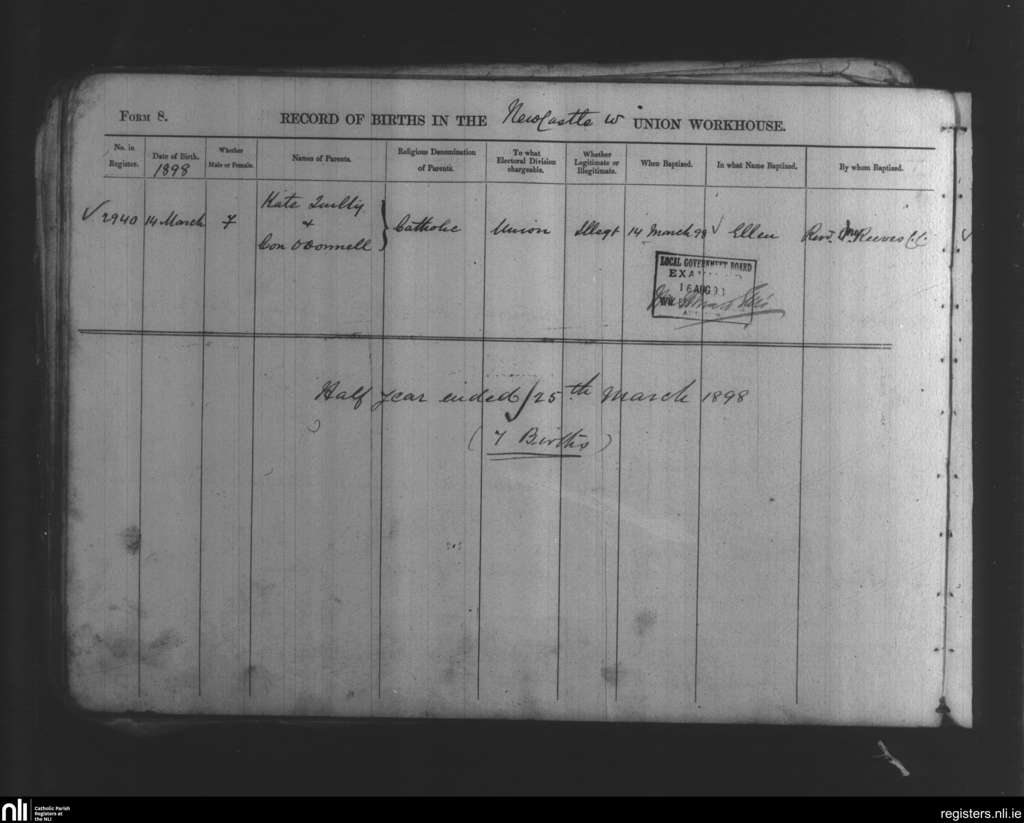 FORM 8.
RECORD OF BIRTHS IN THE Newcastle W UNION WORKHOUSE.
No. in Register.
Date of Birth. 1898
Whether Male or Female.
Names of Parents.
Religious Denomination of Parents.
To what Electoral Division chargeable.
Whether Legitimate or Illegitimate.
When Baptized.
In what Name Baptized.
By whom Baptized.
2940 14 March F Kate Quilty & Con O'Donnell Catholic Union Illegt 14 March 98 Ellen Revd. Reeves C.C.
LOCAL GOVERNMENT BOARD
16 AUG
Half year ended 25th March 1898
(7 Births)
nli
Catholic Parish
Registers at
the NLI
registers.nli.ie